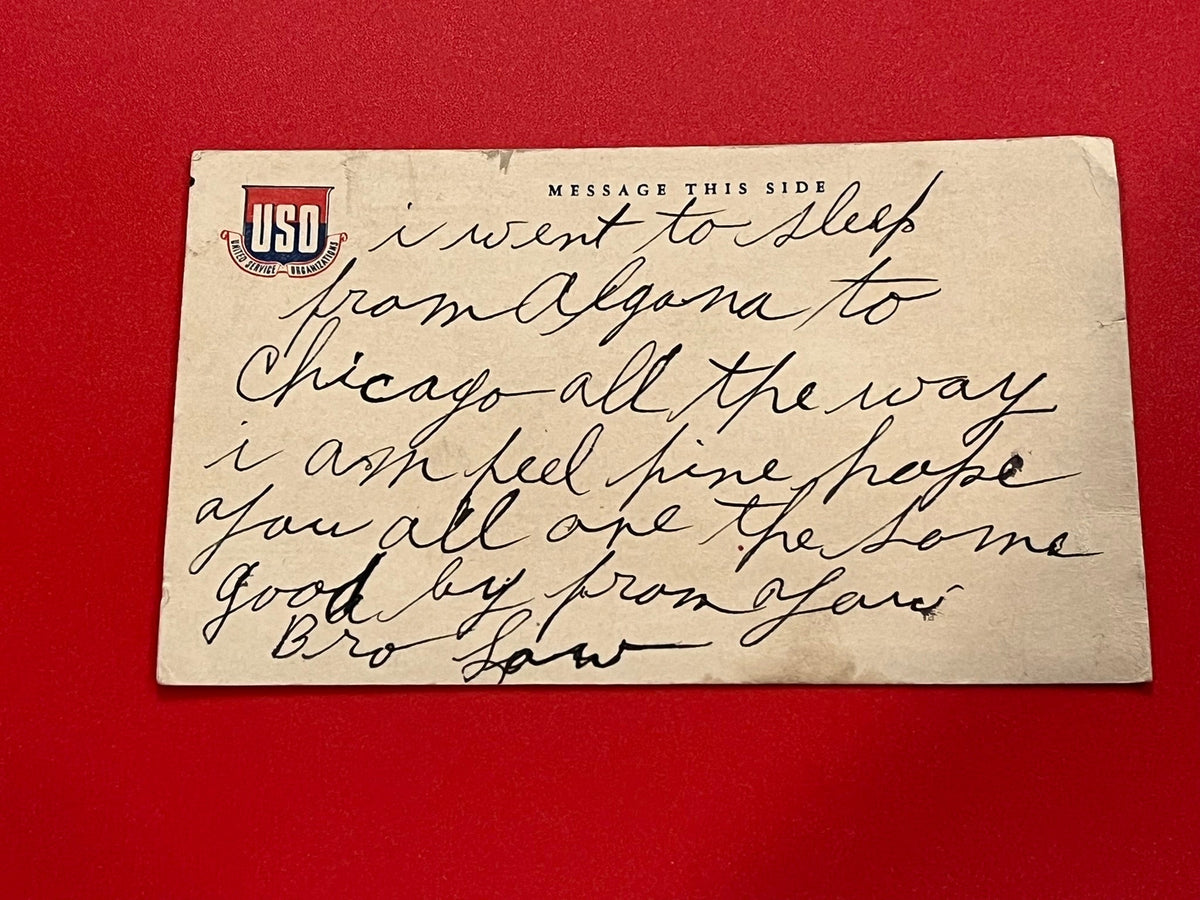 MESSAGE THIS SIDE
USO
UNITED SERVICE ORGANIZATIONS
i went to sleep
from Algona to
Chicago all the way
i am feel fine hope
you all are the same
good by from your
Bro Law